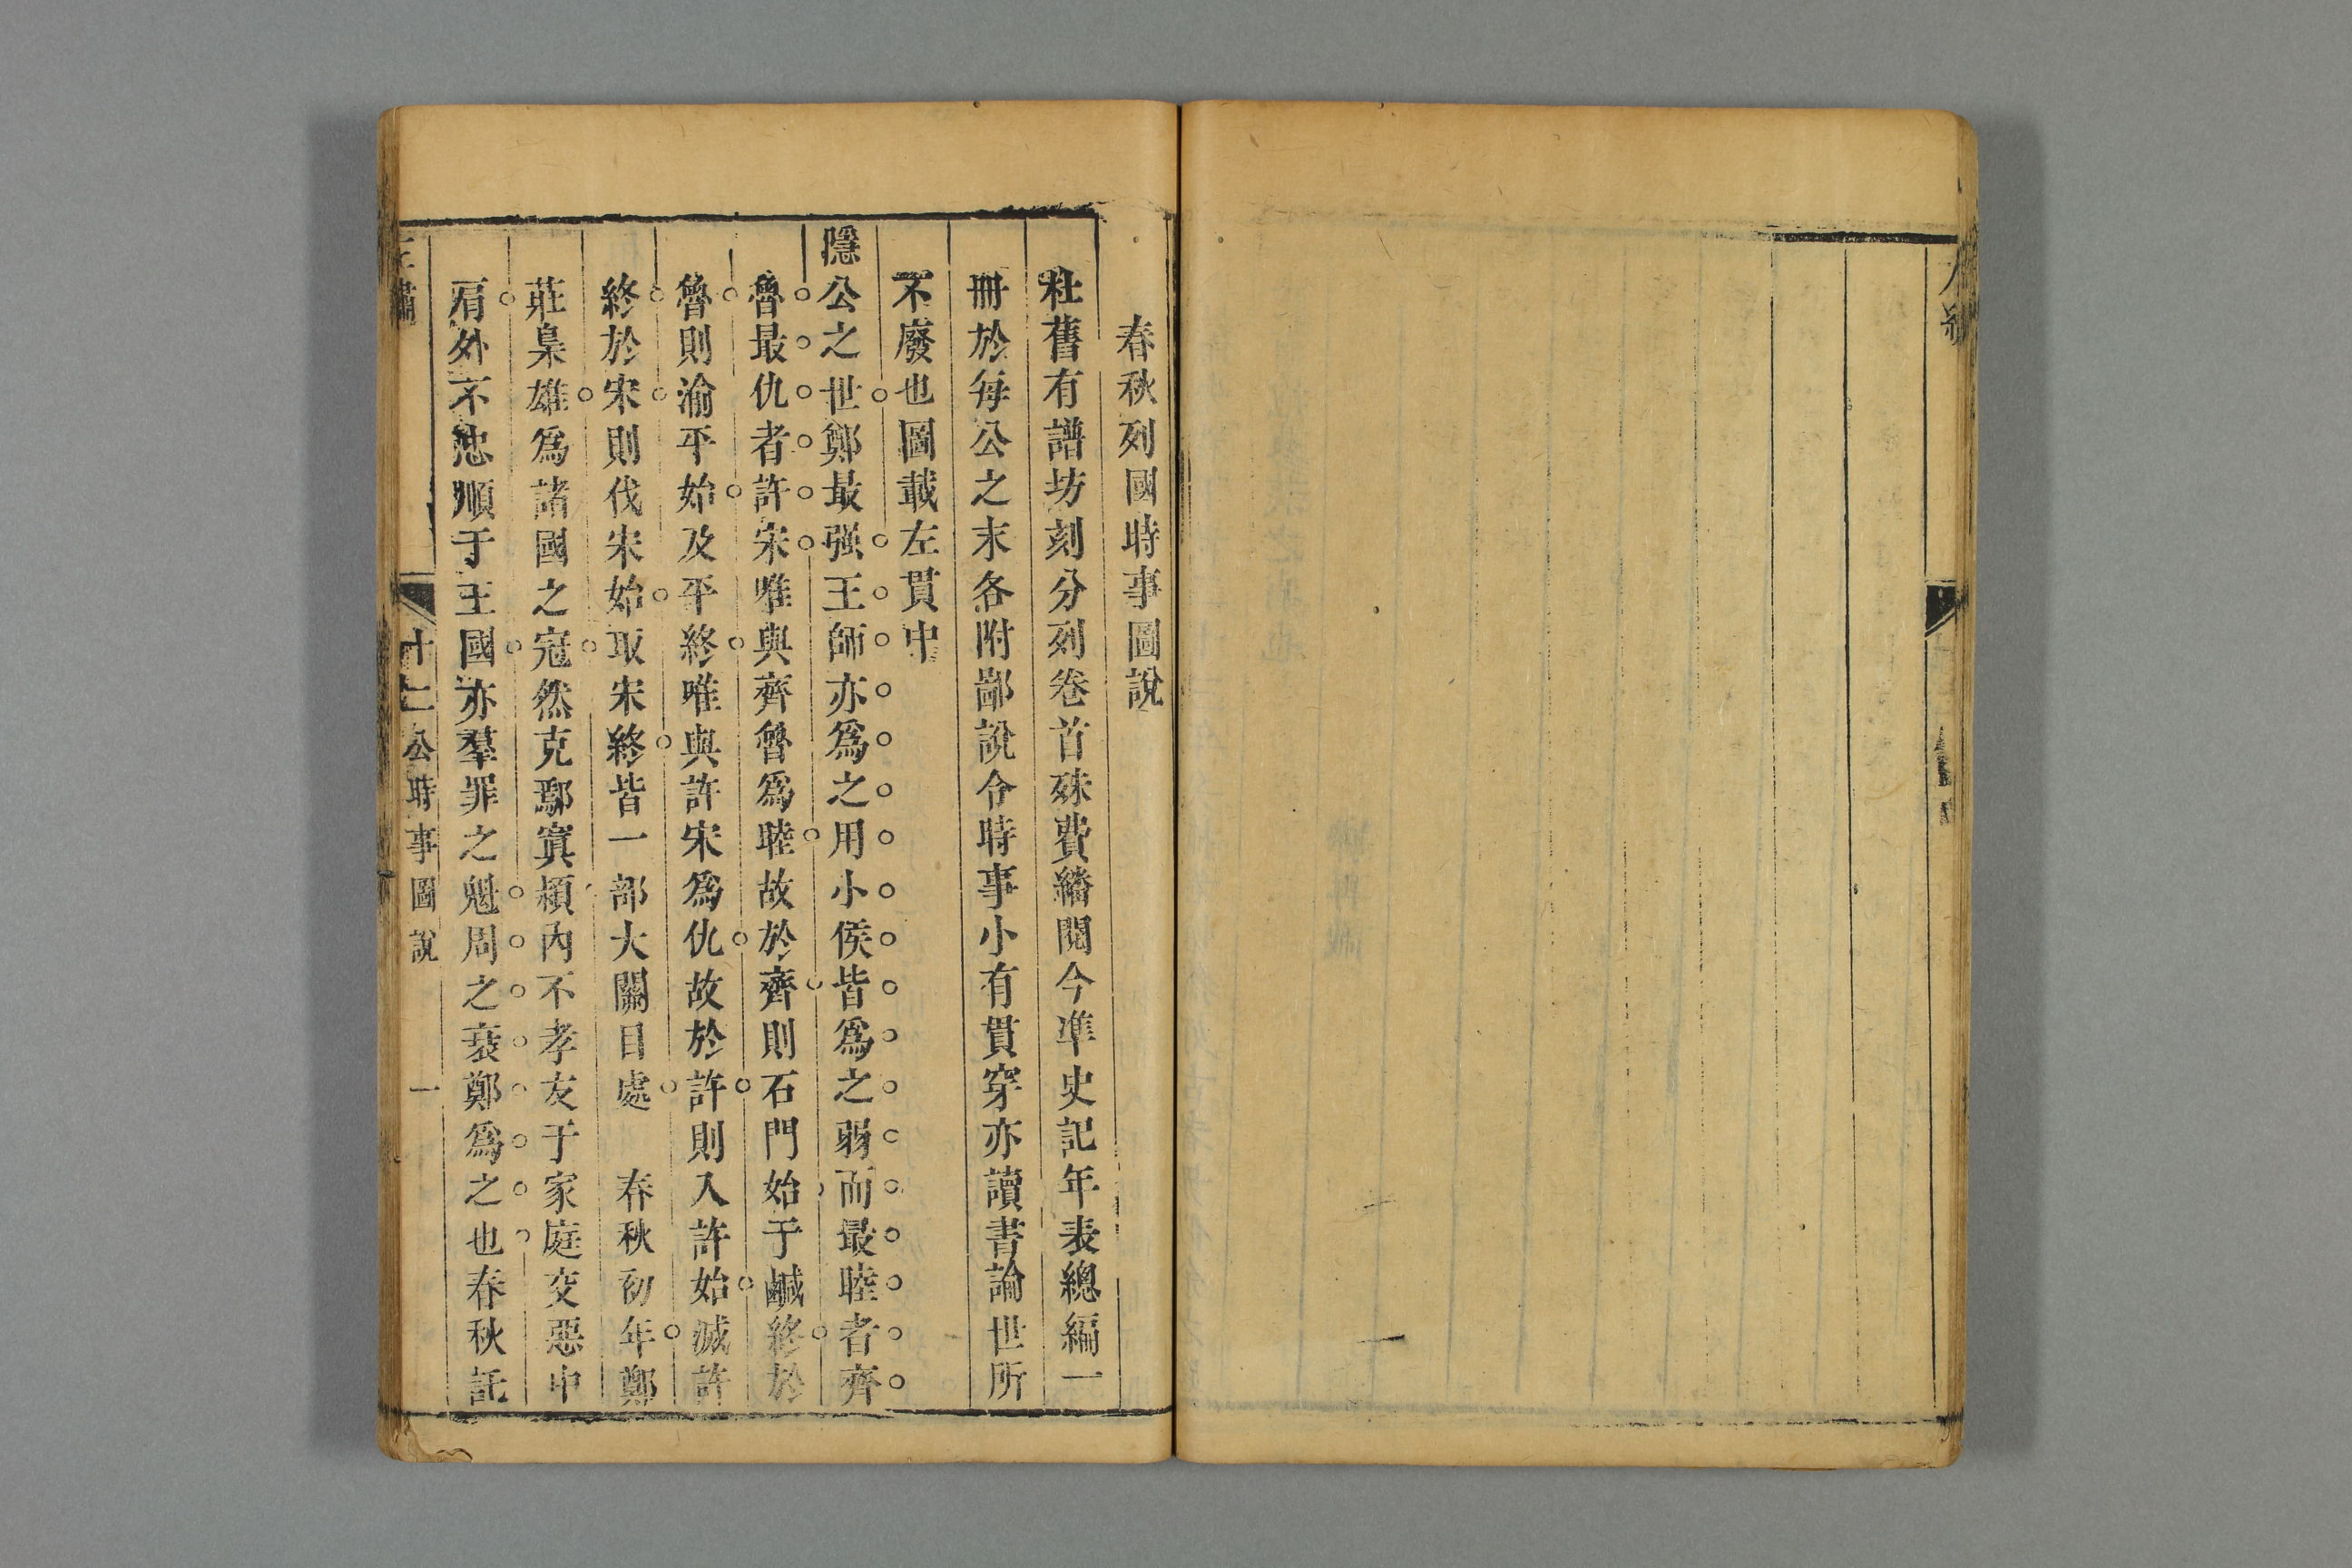 春秋列國時事圖說
杜舊有譜坊刻分列卷首殊費繙閱今凖史記年表總編一
冊於每公之末各附鄙說令時事小有貫穿亦讀書論世所
不廢也圖載左貫中
隱公之世鄭最强王師亦爲之用小侯皆爲之弱而最睦者齊
魯最仇者許宋唯與齊魯爲睦故於齊則石門始于鹹終於
魯則渝平始及平終唯與許宋爲仇故於許則入許始滅許
終於宋則伐宋始取宋終皆一部大關目處 春秋初年鄭
莊梟雄爲諸國之冠然克鄢寘潁內不孝友于家庭交惡中
肩外不忠順于王國亦羣罪之魁周之衰鄭爲之也春秋託
左繡 十二公時事圖說 一